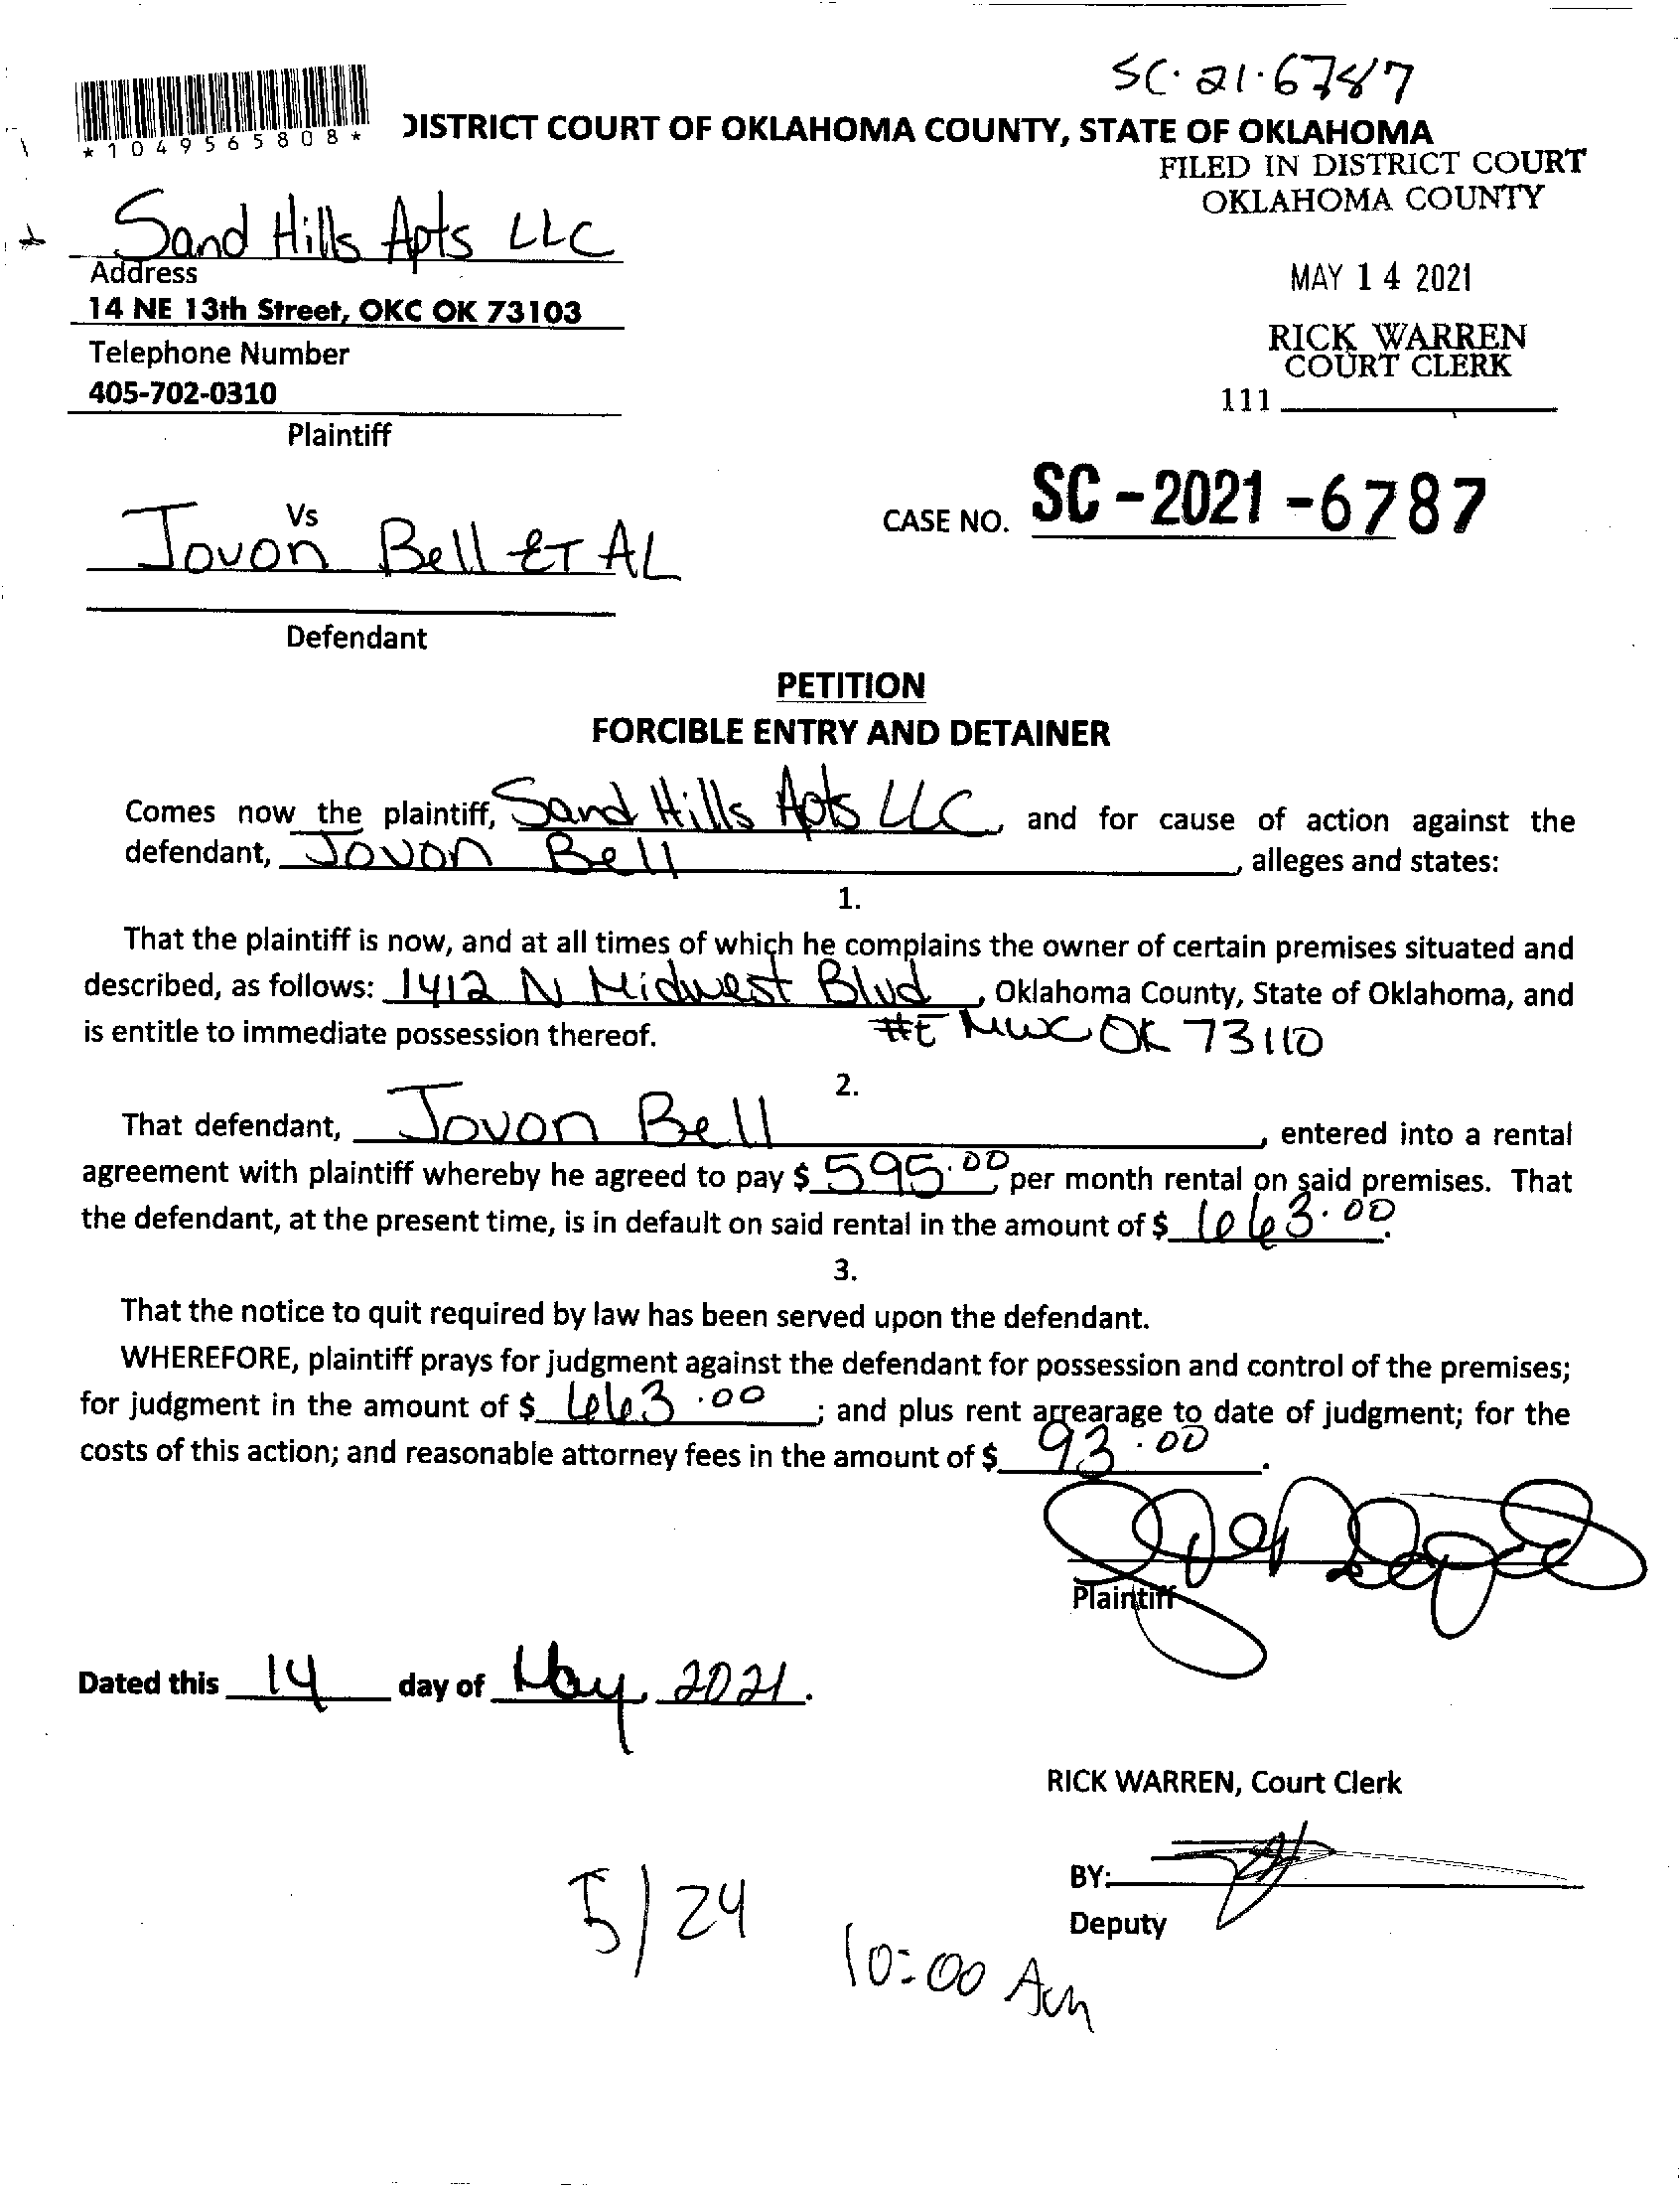 SC·21·6787
*1049565808*
DISTRICT COURT OF OKLAHOMA COUNTY, STATE OF OKLAHOMA
FILED IN DISTRICT COURT
OKLAHOMA COUNTY
Sand Hills Apts LLC
Address
MAY 14 2021
14 NE 13th Street, OKC OK 73103
Telephone Number
RICK WARREN
COURT CLERK
405-702-0310
111
Plaintiff
Vs
CASE NO. SC-2021-6787
Jovon Bell ET AL
Defendant
PETITION
FORCIBLE ENTRY AND DETAINER
Comes now the plaintiff, Sand Hills Apts LLC, and for cause of action against the
defendant, Jovon Bell, alleges and states:
1.
That the plaintiff is now, and at all times of which he complains the owner of certain premises situated and
described, as follows: 1412 N Midwest Blvd, Oklahoma County, State of Oklahoma, and
is entitle to immediate possession thereof. #E MWC OK 73110
2.
That defendant, Jovon Bell, entered into a rental
agreement with plaintiff whereby he agreed to pay $ 595.00, per month rental on said premises. That
the defendant, at the present time, is in default on said rental in the amount of $ 663.00.
3.
That the notice to quit required by law has been served upon the defendant.
WHEREFORE, plaintiff prays for judgment against the defendant for possession and control of the premises;
for judgment in the amount of $ 663.00; and plus rent arrearage to date of judgment; for the
costs of this action; and reasonable attorney fees in the amount of $ 93.00.
Plaintiff
Dated this 14 day of May, 2021.
RICK WARREN, Court Clerk
BY:
Deputy
5/24
10:00 Am